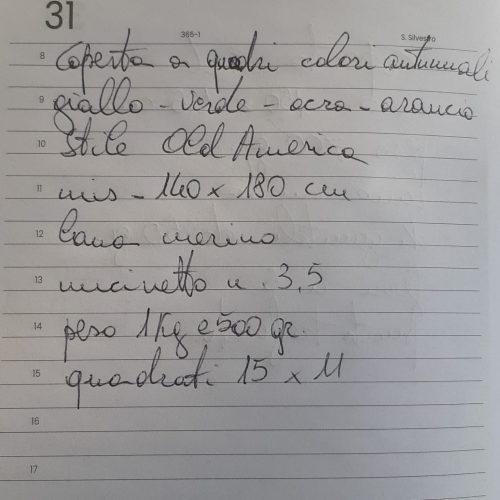 31
365-1
S. Silvestro
8 Coperta a quadri colori autunnali
9 giallo - verde - ocra - arancio
10 Stile Old America
11 mis - 140 x 180 cm
12 lana merino
13 uncinetto n. 3,5
14 peso 1 Kg e 500 gr.
15 quadrati 15 x 11
16
17